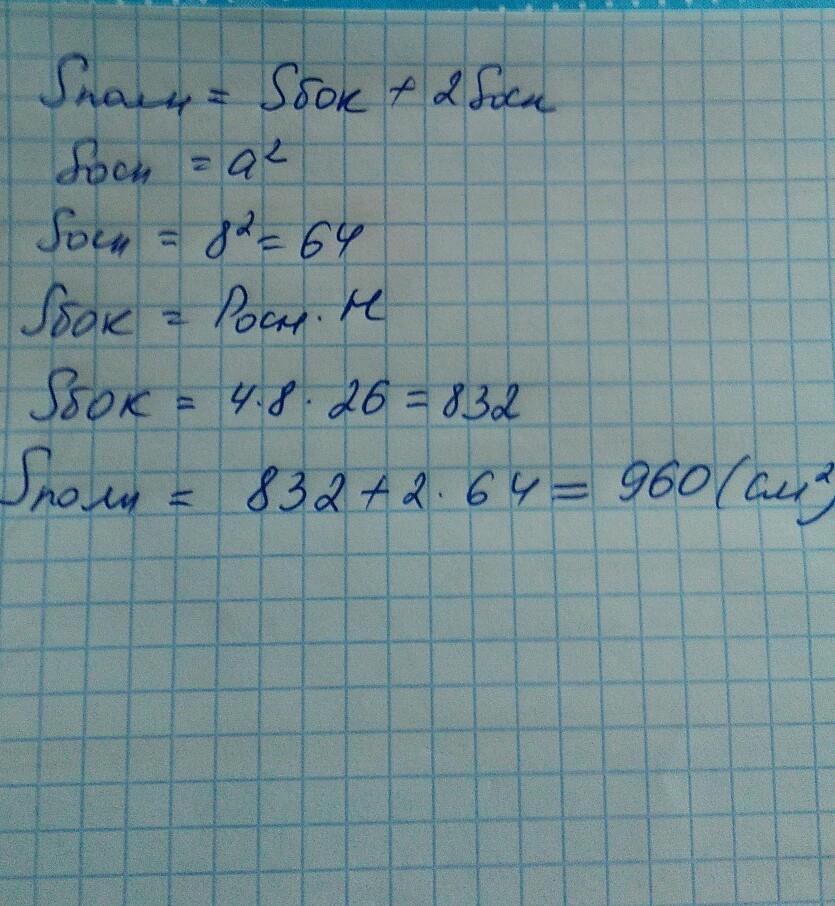 Sполн = Sбок + 2Sосн
Sосн = a²
Sосн = 8² = 64
Sбок = Pосн · H
Sбок = 4·8·26 = 832
Sполн = 832 + 2·64 = 960 (см²)